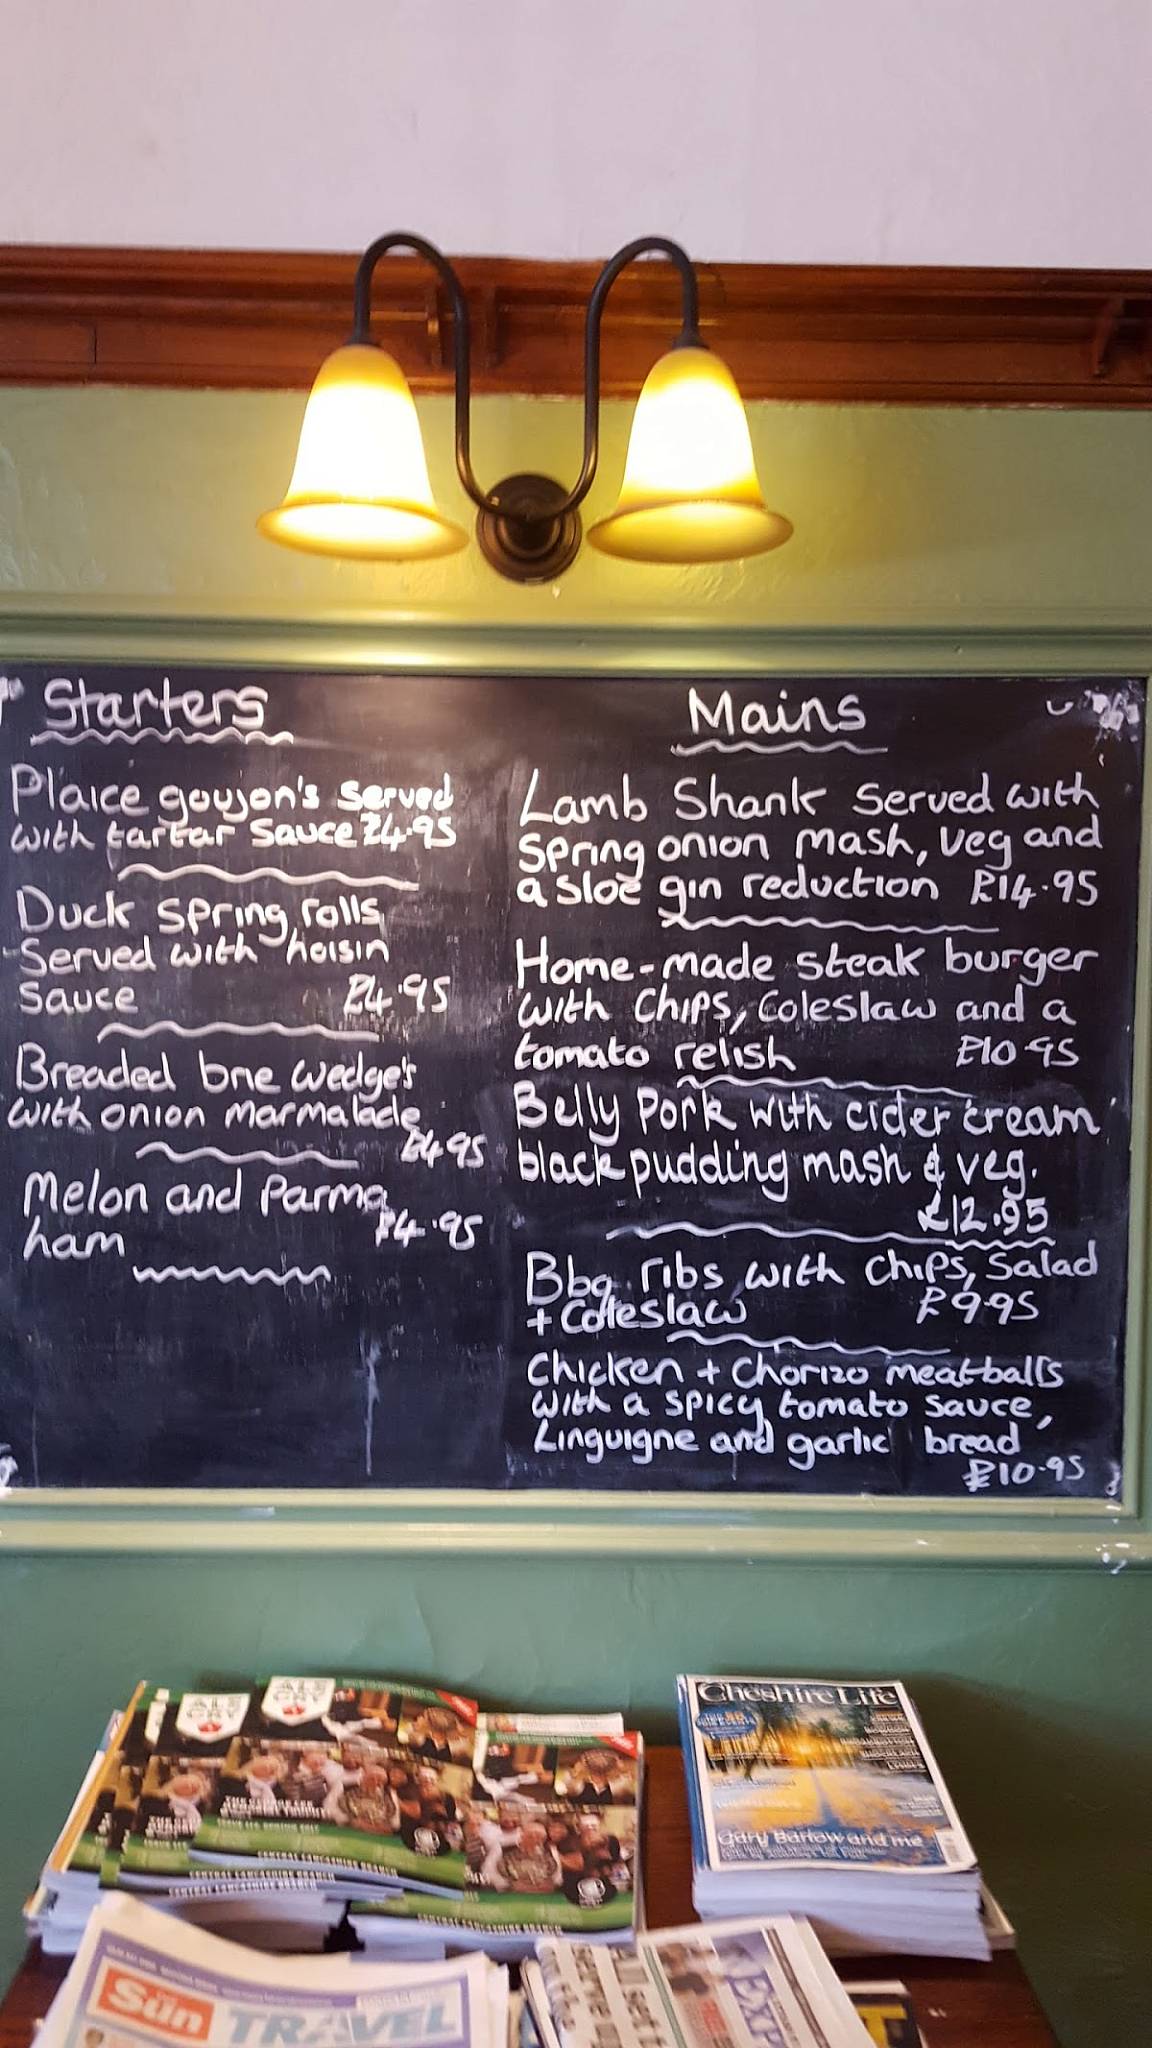 Starters
Plaice goujon's served
with tartar sauce £4.95
Duck spring rolls
Served with hoisin
sauce £4.95
Breaded brie wedge's
with onion marmalade
£4.95
Melon and Parma
ham £4.95
Mains
Lamb Shank served with
spring onion mash, veg and
a sloe gin reduction £14.95
Home-made steak burger
with chips, coleslaw and a
tomato relish £10.95
Belly pork with cider cream
black pudding mash & veg.
£12.95
Bbq ribs with chips, salad
+ coleslaw £9.95
Chicken + chorizo meatballs
with a spicy tomato sauce,
Linguigne and garlic bread
£10.95
ALE
CRY
CENTRAL LANCASHIRE BRANCH
CENTRAL LANCASHIRE BRANCH
CENTRAL LANCASHIRE BRANCH
Cheshire Life
Gary Barlow and me
The Sun
TRAVEL
EXP